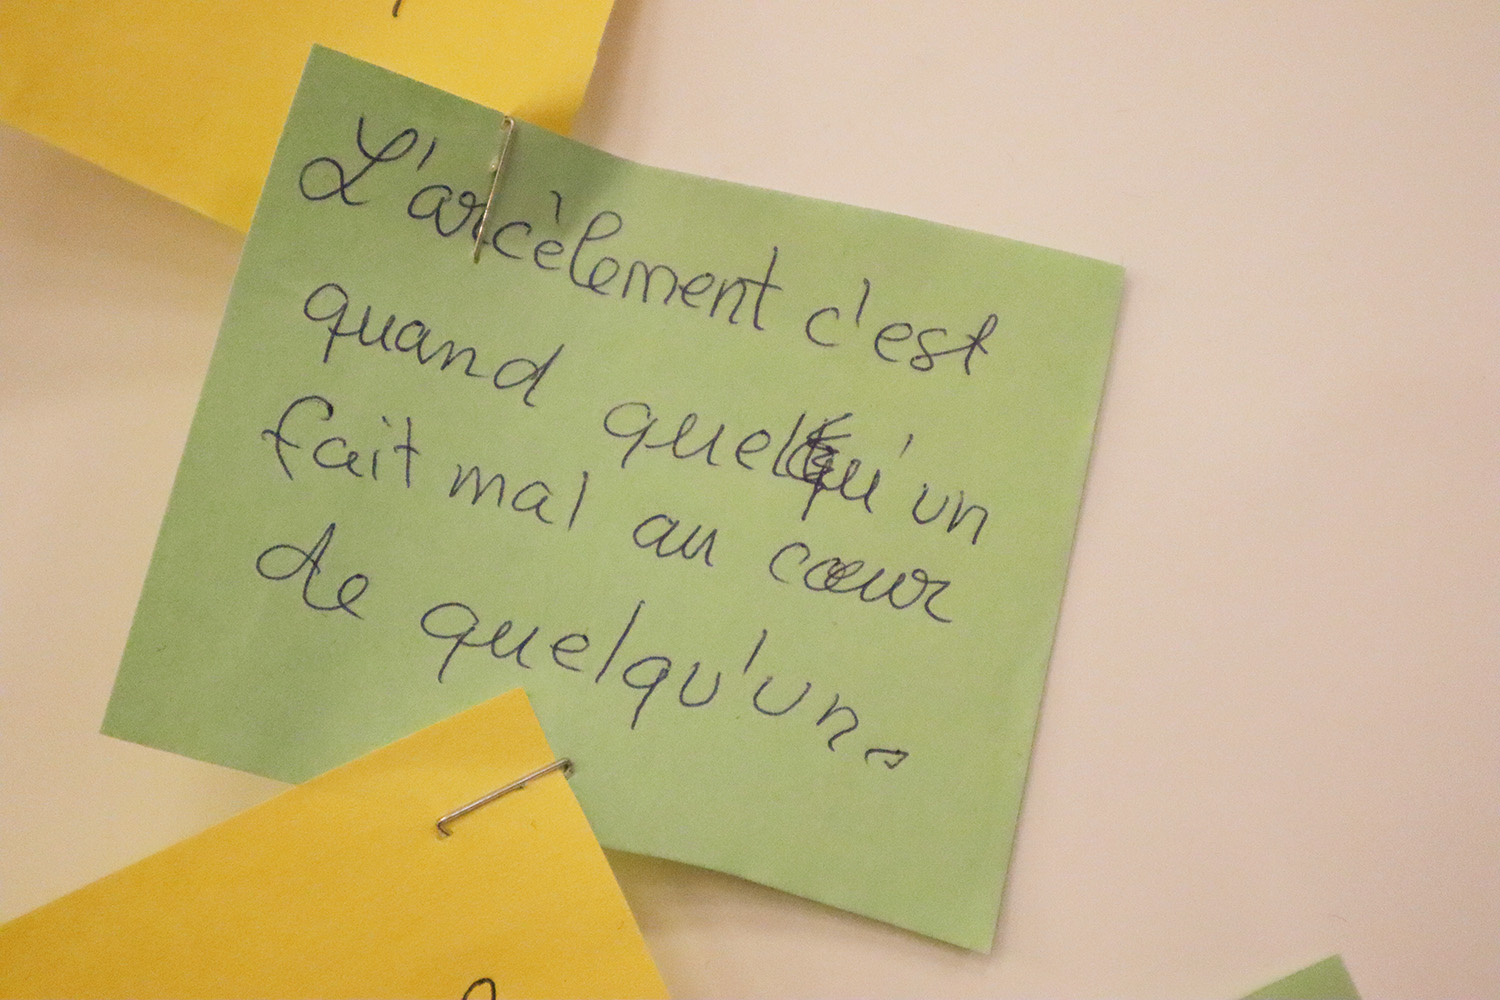 L'arcèlement c'est
quand quelqu'un
fait mal au cœur
de quelqu'un.